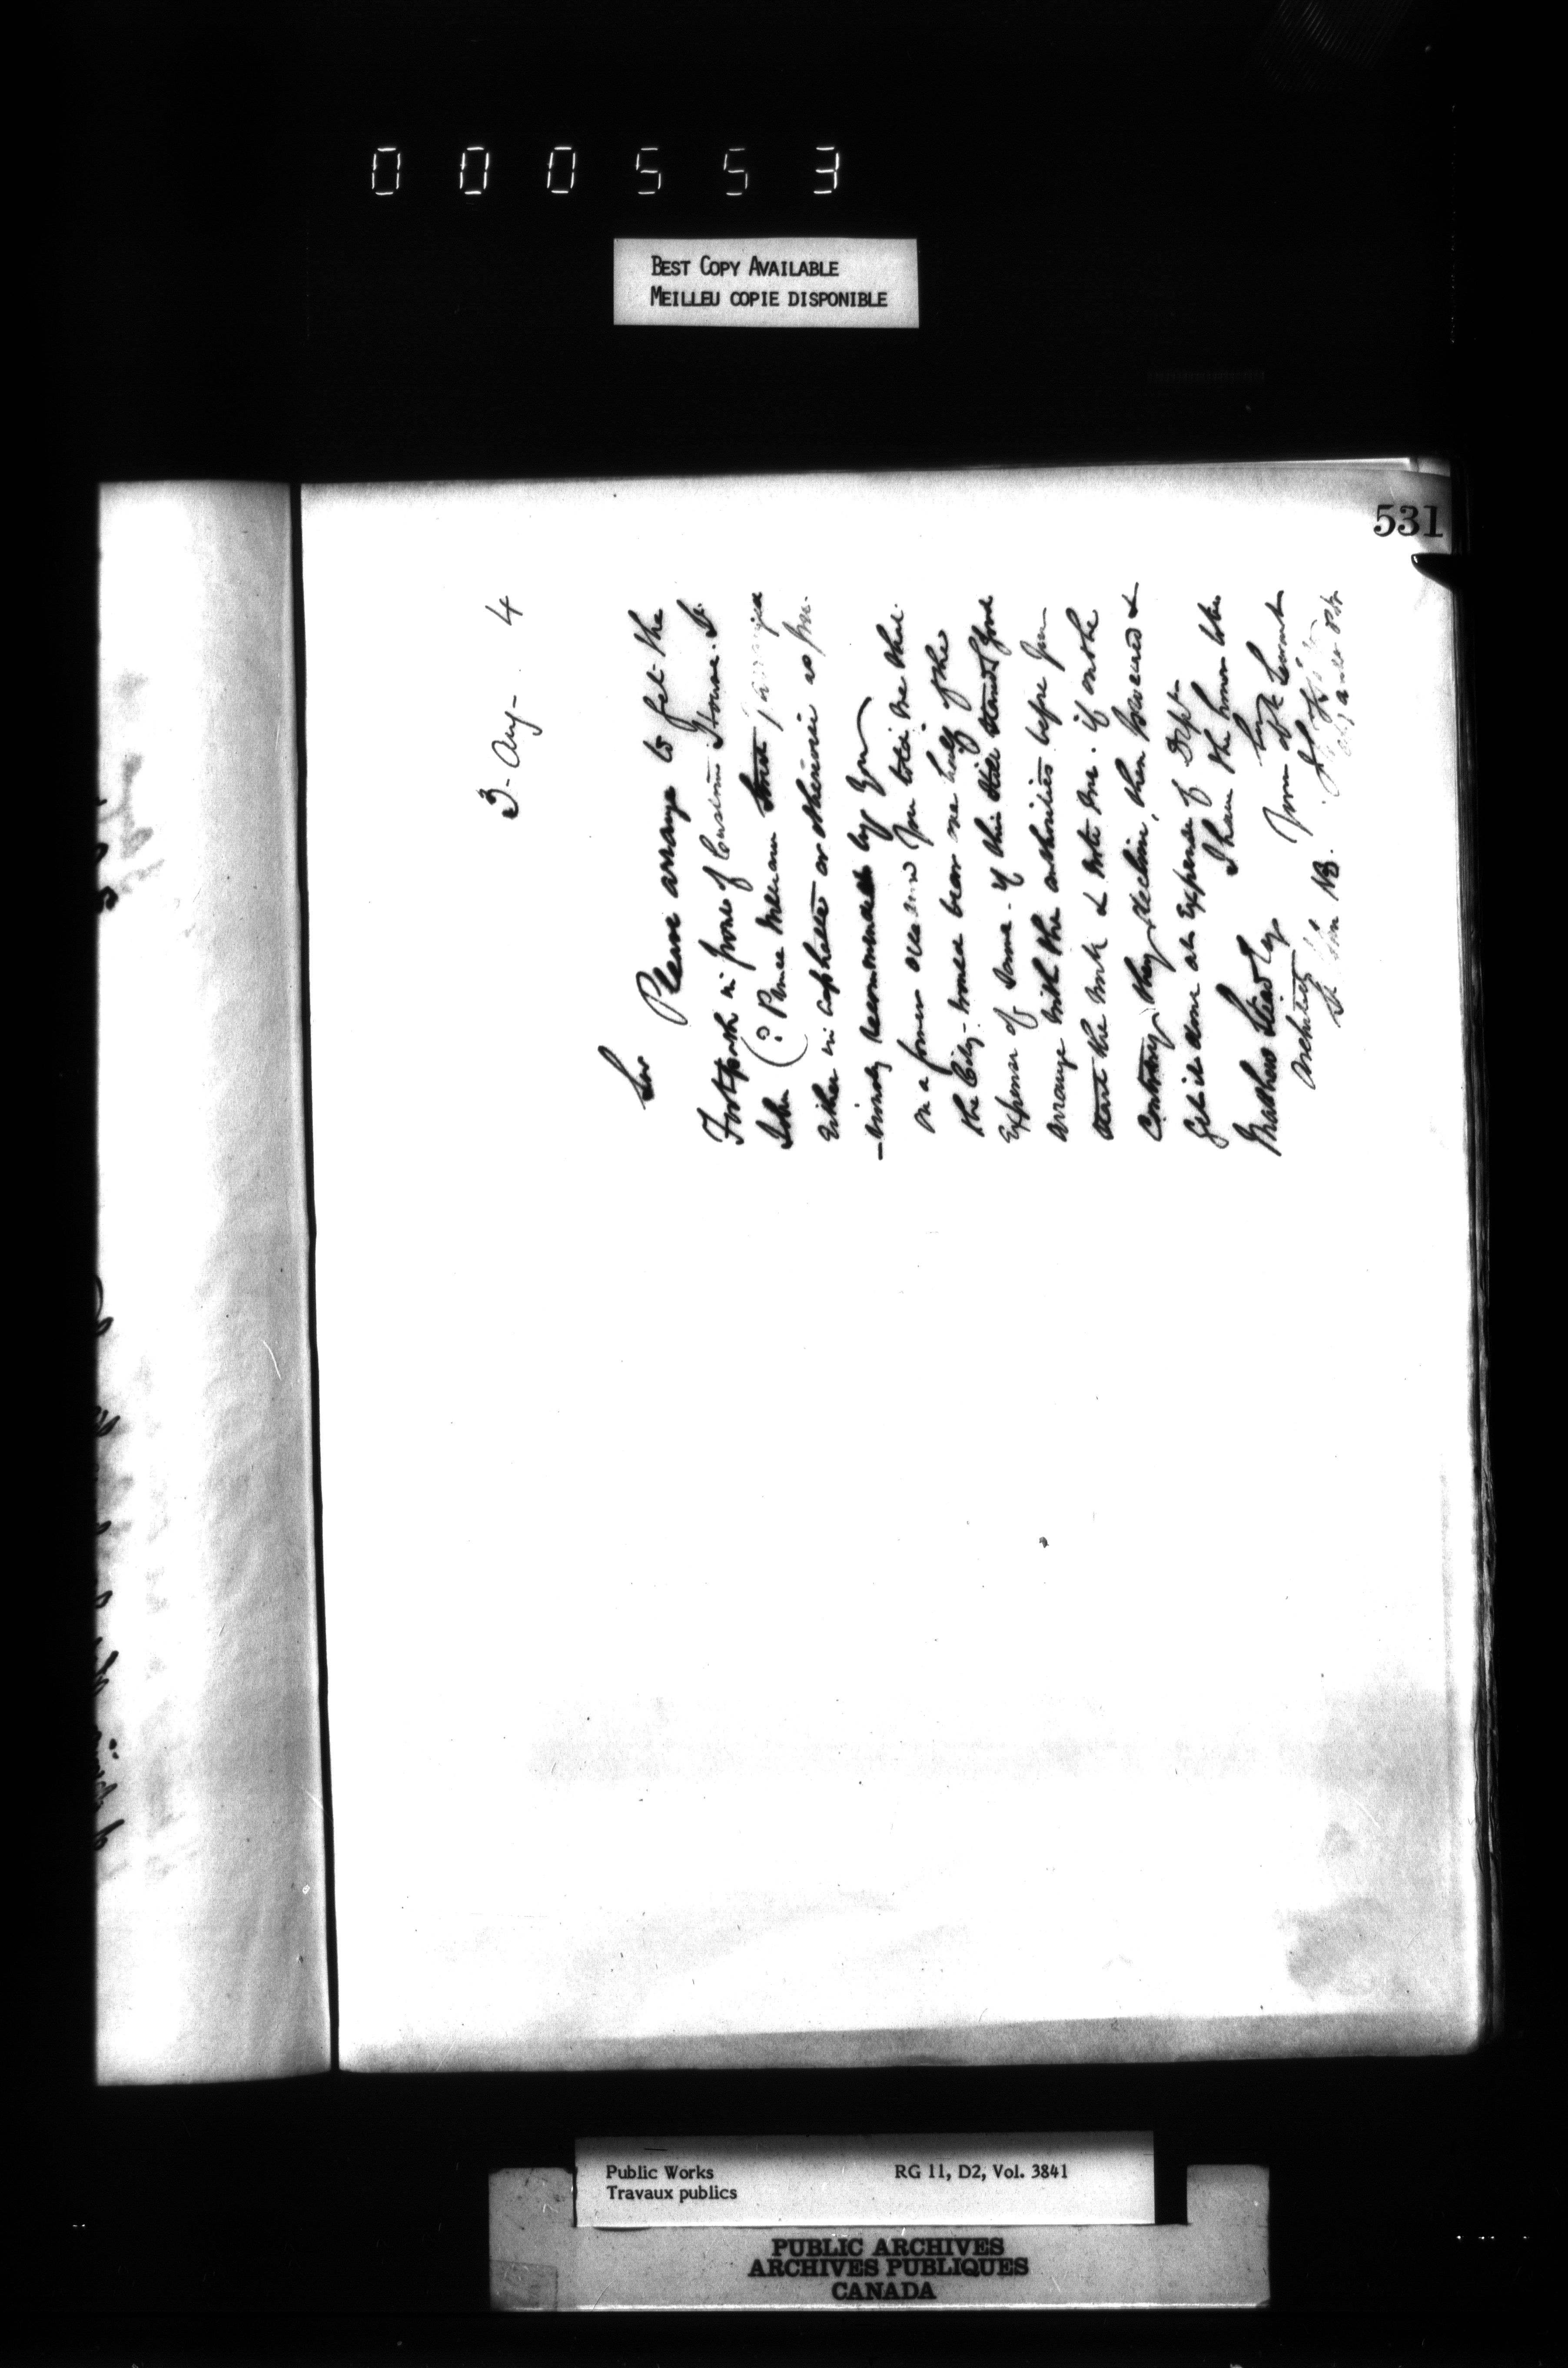 000553
BEST COPY AVAILABLE
MEILLEU COPIE DISPONIBLE
531
3 - Aug - 4
Sir
Please arrange to get the
Footpath in front of Custom House St.
John (? Prince William Street)
either in asphalte or otherwise as pre-
-viously recommended by you
On a former occasion you told me that
the City would bear one half of the
Expense of same - if this still stands good
arrange with the authorities before you
start the work & note me. if on the
Contrary they decline, then proceed &
get it done at Expense of Dept
I have the honor to be
Sir
Your obt Servant
Mathew Stead Esq
Architect
St John NB.
Public Works
Travaux publics
RG 11, D2, Vol. 3841
PUBLIC ARCHIVES
ARCHIVES PUBLIQUES
CANADA